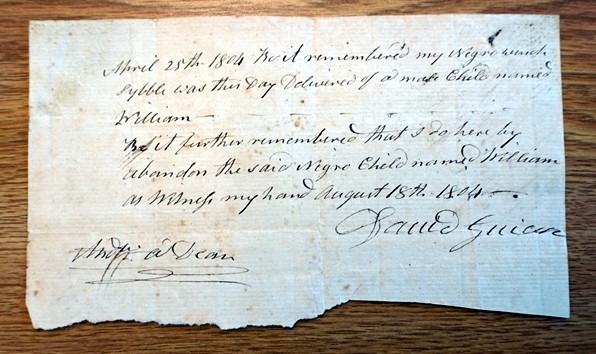 April 25th 1804 Be it remembered my Negro wench
Sybbe was this Day Delivered of a male Child named
William —
Be it further remembered that I do here by
abandon the said Negro Child named William
as Witness my hand August 18th 1804 —
David
a Dean